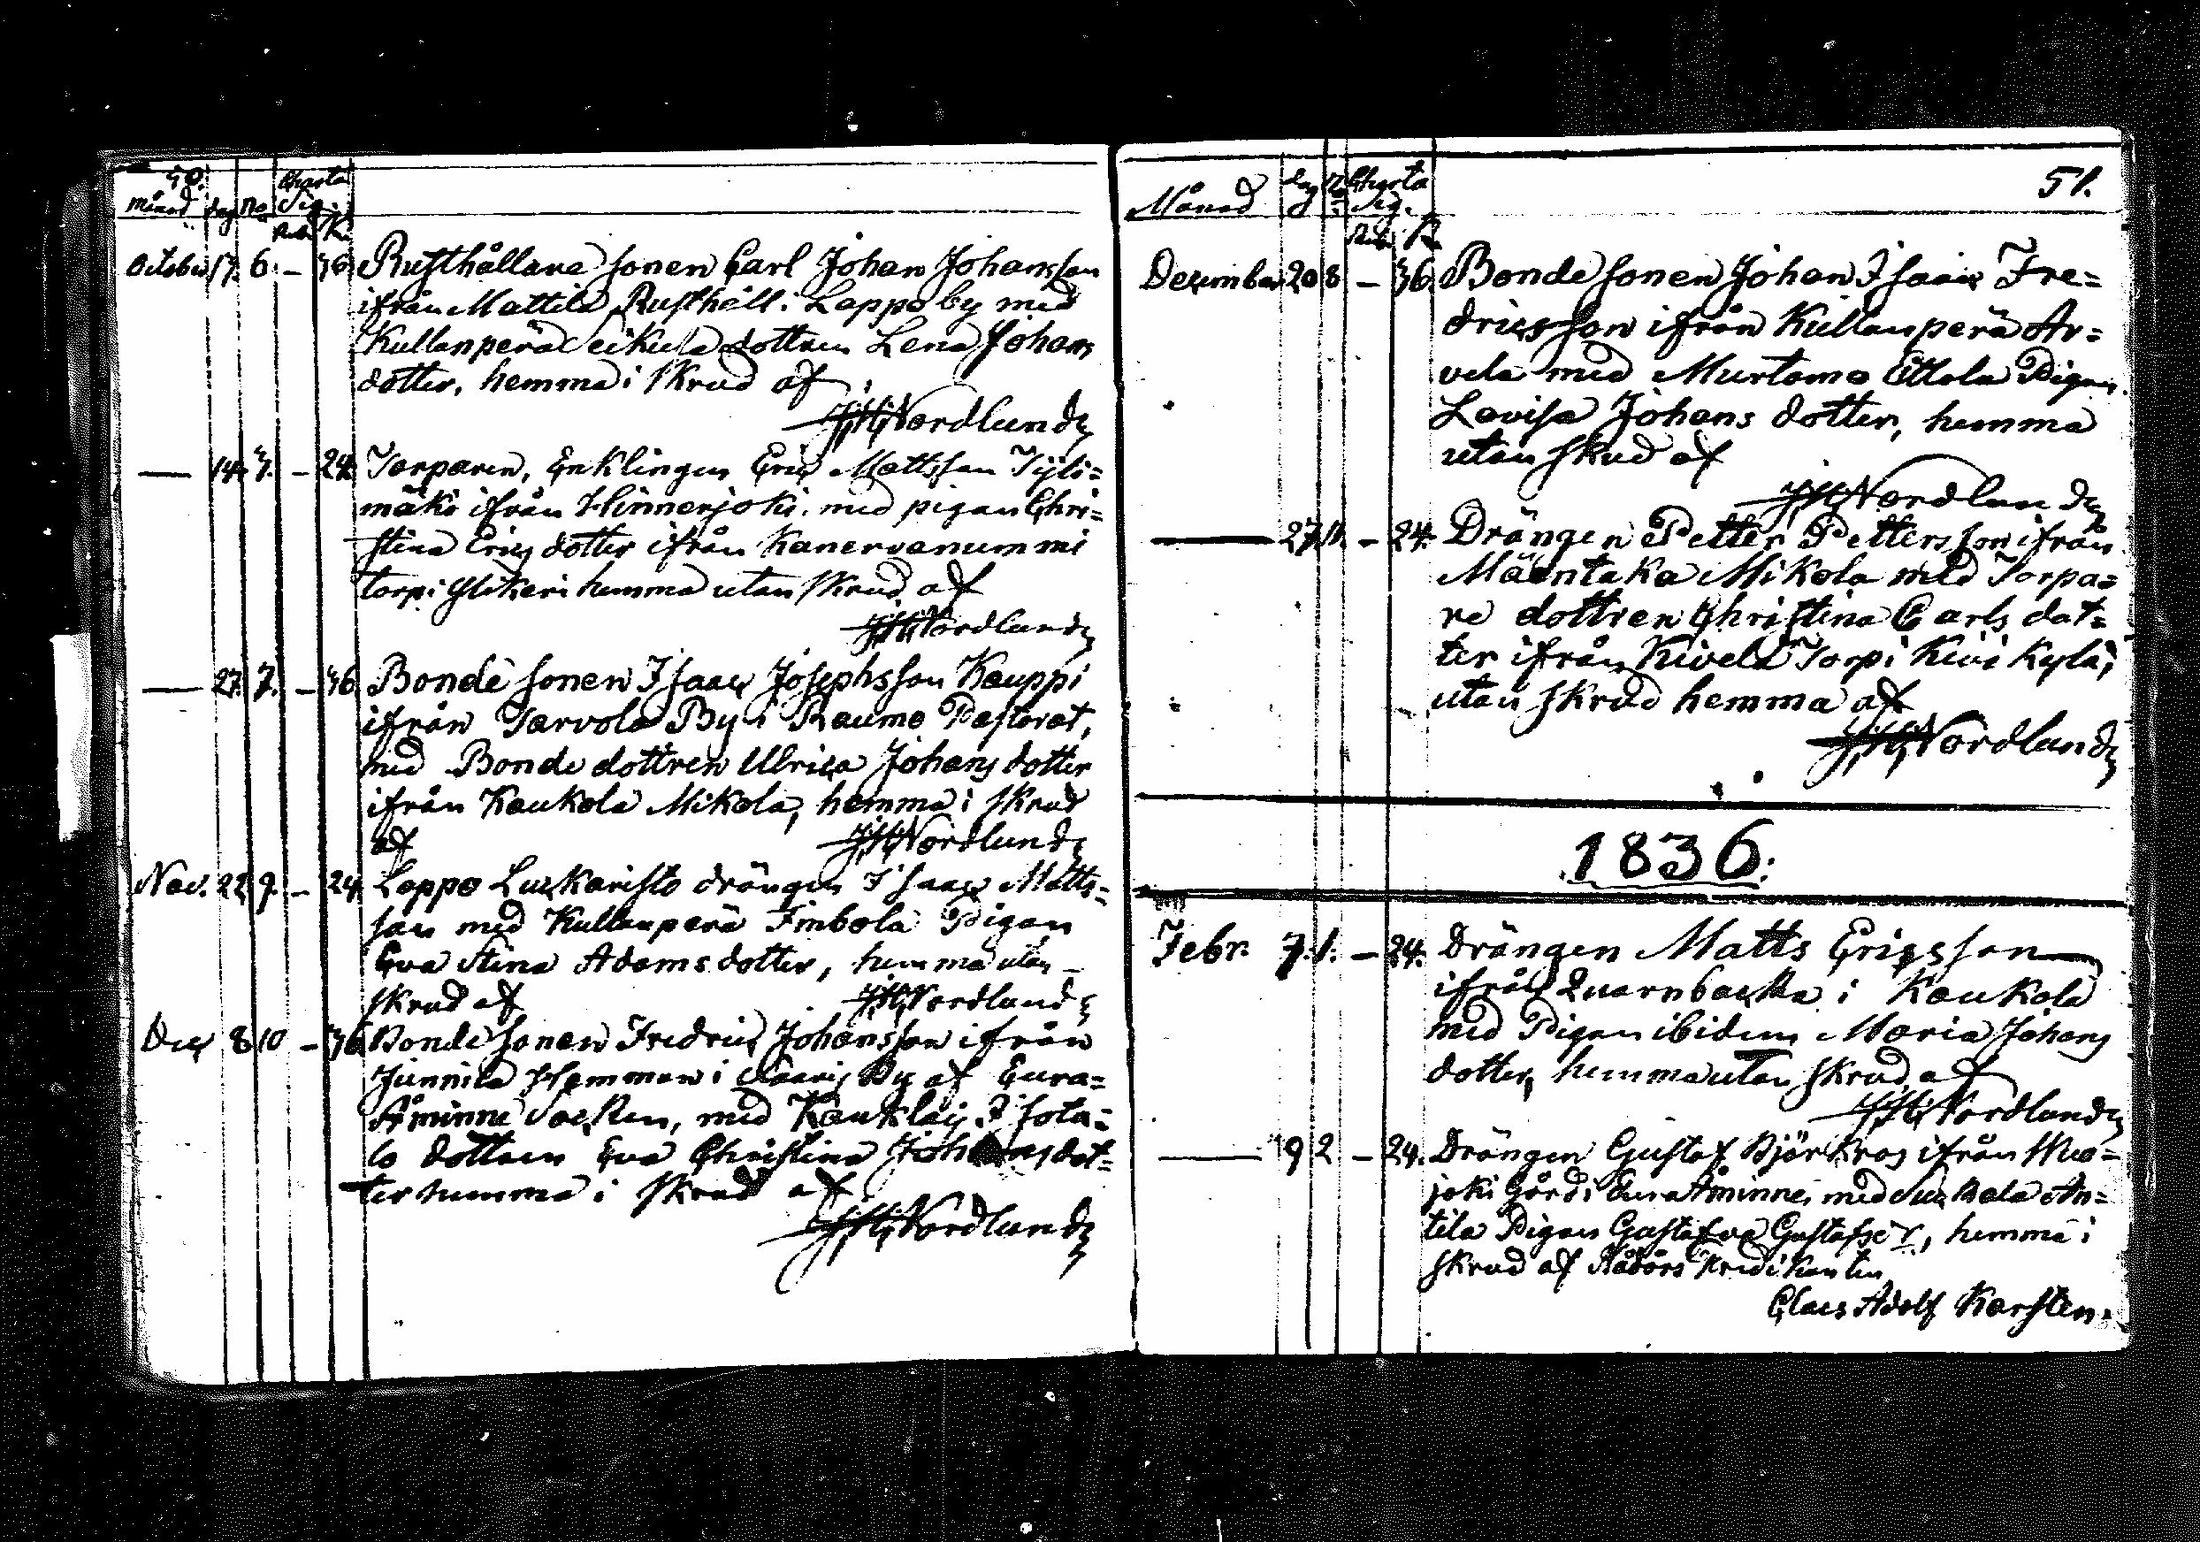 50.
Månad dag No Charta Sig.
Rub. K.
October 17. 6. – 36. Rusthållare sonen Carl Johan Johansson
ifrån Mattila Rusthåll i Lappo by med
Kullanperä Seikula dottren Lena Johans
dotter, hemma i skrud af
J.H. Nordlund
— 14. 7. – 24. Torparen, Enklingen Eric Mattsson
mäki ifrån Hinnerjoki, med pigan Chri=
stina Erics dotter ifrån Kanervanummi
torp i hemma utan skrud af
J.H. Nordlund
— 27. 7. – 36 Bonde sonen Isaac Josephsson Kauppi
ifrån Tarvola By i Raumo Pastorat,
med Bonde dottren Ulrica Johans dotter
ifrån Kaukola Mikola, hemma i skrud
af J.H. Nordlund
Nov. 22. 9. – 24. Lappo Luskaristo drängen Isaac Matts=
son med Kullanperä Pigan
Eva Stina Adams dotter, hemma utan
skrud af J.H. Nordlund
Dec 8 10 – 36 Bonde sonen Fredric Johansson ifrån
Junnila Hemman i By af Eura=
Åminne Socken, med Isota=
lo dottren Eva Christina Johansdot=
ter hemma i skrud af
J.H. Nordlund
51.
Månad dag No Charta Sig.
Rub. K.
December 20 8 – 36. Bonde sonen Johan Isaac Fre=
dricsson ifrån Kullanperä Ar=
vela med Murtamo Ettala Pigan
Lovisa Johans dotter, hemma
utan skrud af
J.H. Nordlund
— 27. 11. – 24. Drängen Petter Pettersson ifrån
Mäentaka Mikola med Torpa=
re dottren Christina Carls dot=
ter ifrån Kivelä Torp i Kivikylä,
utan skrud hemma af
J.H. Nordlund
1836.
Febr. 7. 1. – 24. Drängen Matts Ericsson
ifrån Quarnbacka i Kaukola
med Pigan ibidem Maria Johans
dotter, hemma utan skrud af
J.H. Nordlund
— 9 2 – 24. Drängen Gustaf Björkros ifrån
joki Gård i Eura Åminne, med An=
tila Pigan Gustafva Gustafsdr, hemma i
skrud af Nådårs Predikanten
Claes Adolf Karsten.